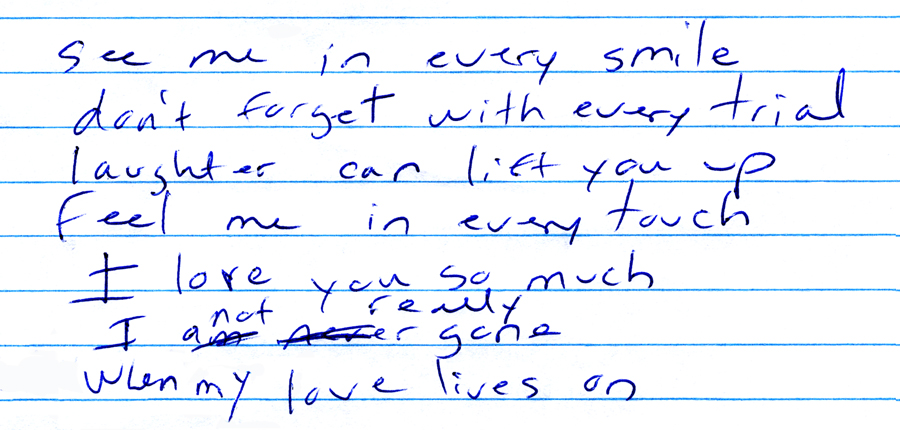 see me in every smile
don't forget with every trial
laughter can lift you up
feel me in every touch
I love you so much
not really
I am never gone
When my love lives on